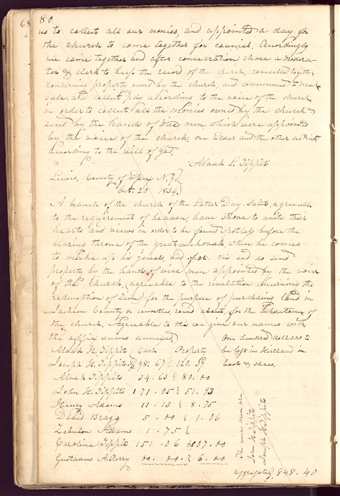 80
us to collect all our monies, and appointed a day for
the church to come together for counsel. Accordingly
we came together and after consecration chose a modera-
tor & clerk to keep the record of the church, consulted together
concerning property owned by the church, and commenced to make
sale, and collect pay according to the voice of the church
in order to collect all the monies owned by the church &
send by the hands of wise men which were appointed
by the voice of the church, one Elder and the other a Priest
according to the will of God,
Alvah L. Tippits
Lewis, County of Essex N.Y.
Oct. 20 1834
A branch of the church of the Latter Day Saints, agreeable
to the requirement of heaven, have strove to unite their
hearts and in order to be found spotless before the
blazing throne of the great Jehovah when he comes
to make up his jewels, and for this end do send
property by the hands of wise men appointed by the voice
of the church, (agreeable to the revelation concerning the
redemption of Zion) for the purpose of purchasing land in
Jackson County or counties round about, for the inheritance of
the church. Agreeable to this we give our names with
the affix sums annexed,
One hundred dollars to
be left in Kirtland in
cash & shares.
Cash Property
Joseph H. Tippits 48.67
Alvah Tippits 54.63 80.00
John H. Tippits 171.05 51.93
Henry Adams 11.13 8.75
David Bragg 5.00 1.06
Zebulon Adams 1.75
Caroline Tippits 151.06
Gustavus A. Perry 00.00 6.00
The wise men are
John H. Tippits
Joseph H. Tippits
aggregate, $848.40